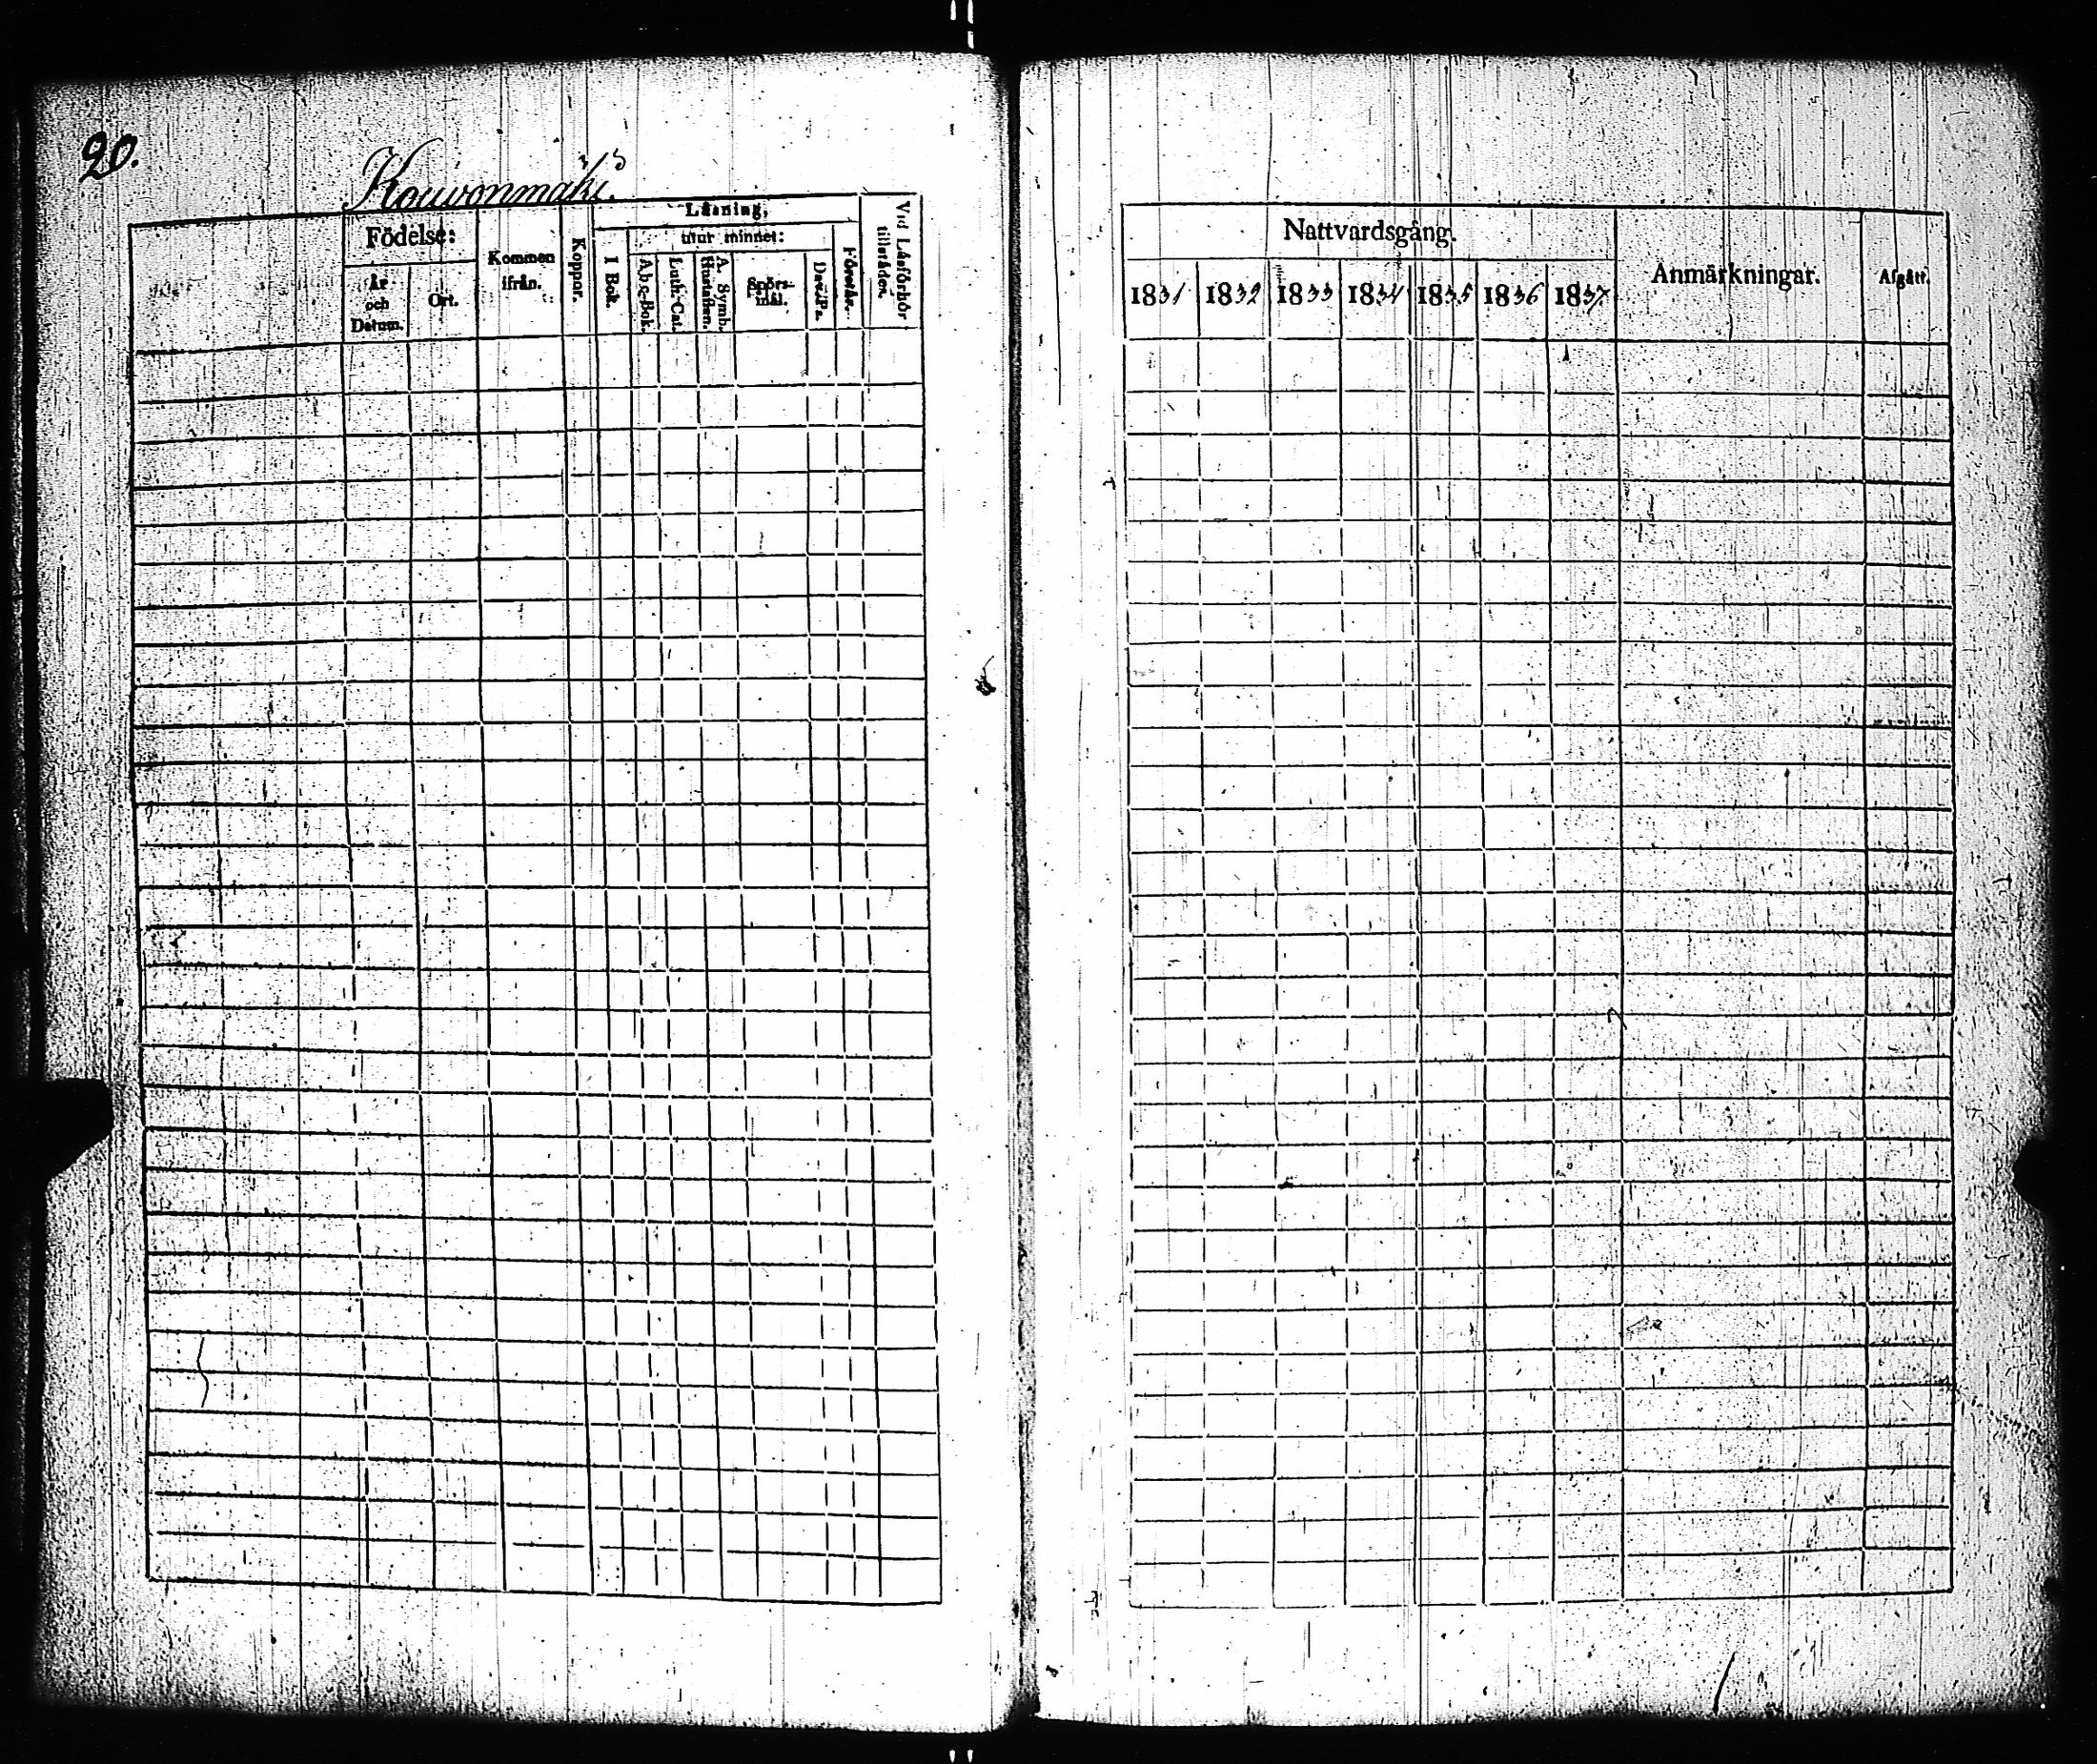 20.
Kouvonmäki.
Födelse:
År och Datum.
Ort.
Kommen ifrån.
Koppor.
Läsning,
I Bok.
utur minnet:
A.b.c-Bok.
Luth. Cat.
A. Symb. Hustaflan.
Spörsmål.
Dav. Ps.
Förstår.
Vid Läsförhör tillstädes.
Nattvardsgång.
1831 1832 1833 1834 1835 1836 1837
Anmärkningar.
Afgått.